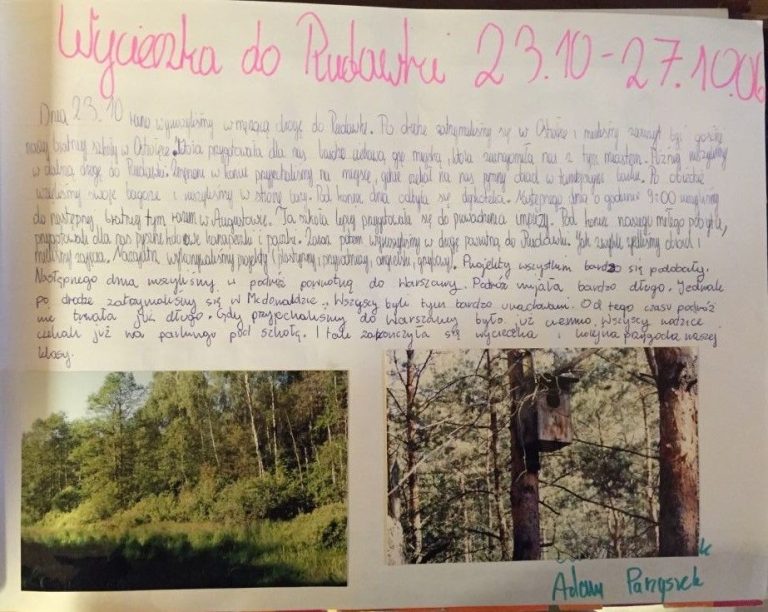 Wycieczka do Rudawki 23.10-27.10.06
Dnia 23.10 rano wyruszyliśmy w męczącą drogę do Rudawki. Po drodze zatrzymaliśmy się w i mieliśmy zaszczyt być gośćmi
naszej bratniej szkoły w która przygotowała dla nas bardzo ciekawą grę miejską, która zaznajomiła nas z tym miastem. Później ruszyliśmy
w dalszą drogę do Rudawki. w końcu przyjechaliśmy na miejsce, gdzie czekał na nas pyszny obiad w Po obiedzie
wzięliśmy swoje bagaże i ruszyliśmy w stronę Pod koniec dnia odbyła się dyskoteka. Następnego dnia o godzinie 9:00 ruszyliśmy
do następnej bratniej tym razem w Augustowie. Ta szkoła lepiej przygotowała się do prowadzenia imprezy. Pod koniec naszego miłego pobytu,
dla nas pyszne kanapeczki i pączki. Zaraz potem wyruszyliśmy w drogę powrotną do Rudawki. Jak zwykle zjedliśmy obiad i
mieliśmy zajęcia. wykonywaliśmy projekty (plastyczny, przyrodniczy, angielski, ). Projekty wszystkim bardzo się podobały.
Następnego dnia ruszyliśmy w podróż powrotną do Warszawy. Podróż mijała bardzo długo. Jednak
po drodze zatrzymaliśmy się w Mcdonaldzie. Wszyscy byli tym bardzo uradowani. Od tego czasu podróż
nie trwała jak długo. Gdy przyjechaliśmy do Warszawy było już ciemno. Wszyscy rodzice
czekali już na parkingu pod szkołą. I tak zakończyła się wycieczka i kolejna przygoda naszej
klasy.
Adam Parzyszek